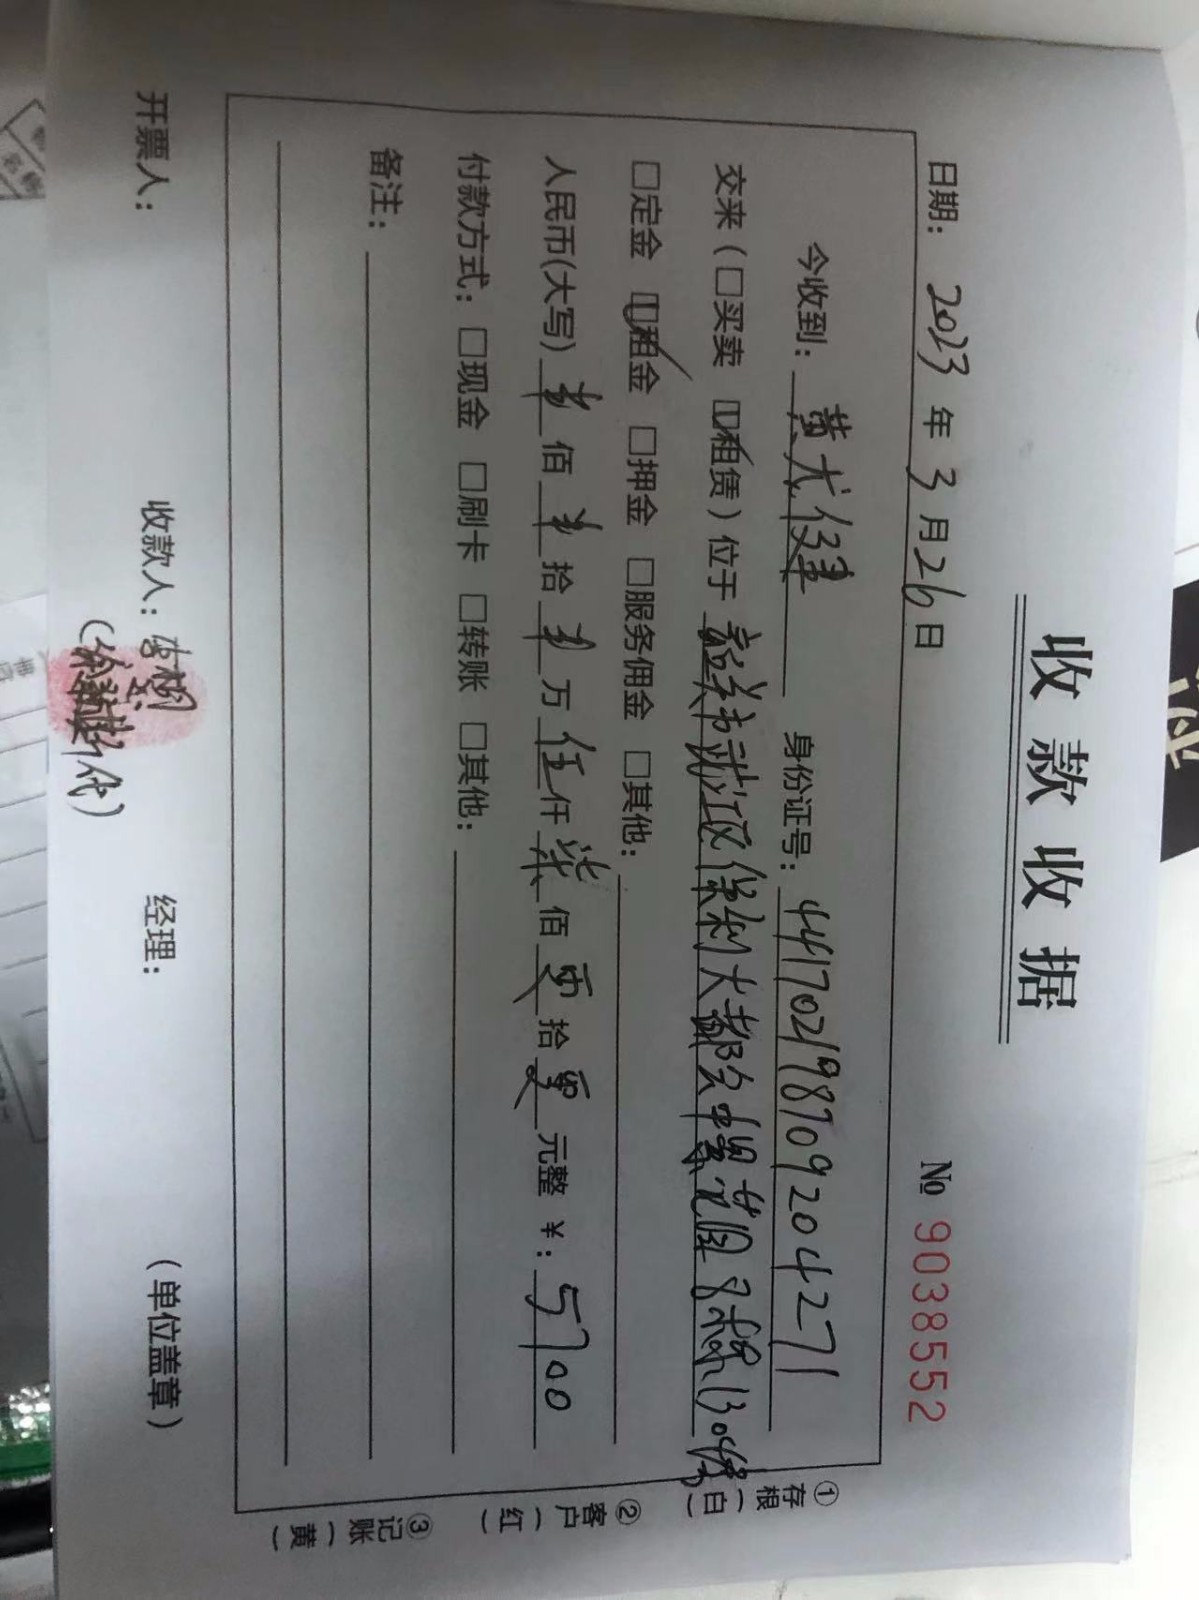 收款收据
日期: 2023 年 3 月 26 日 № 9038552
今收到: 黄尤俊 身份证号: 441702198709204271
交来(□买卖 ☑租赁)位于 区保利大都会 1304房
□定金 ☑租金 □押金 □服务佣金 □其他:
人民币(大写) 佰 拾 万 伍 仟 柒 佰 零 拾 零 元整 ¥: 5700
付款方式: □现金 □刷卡 □转账 □其他:
备注:
开票人: 收款人: 李 代) 经理: (单位盖章)
①存根(白)
②客户(红)
③记账(黄)